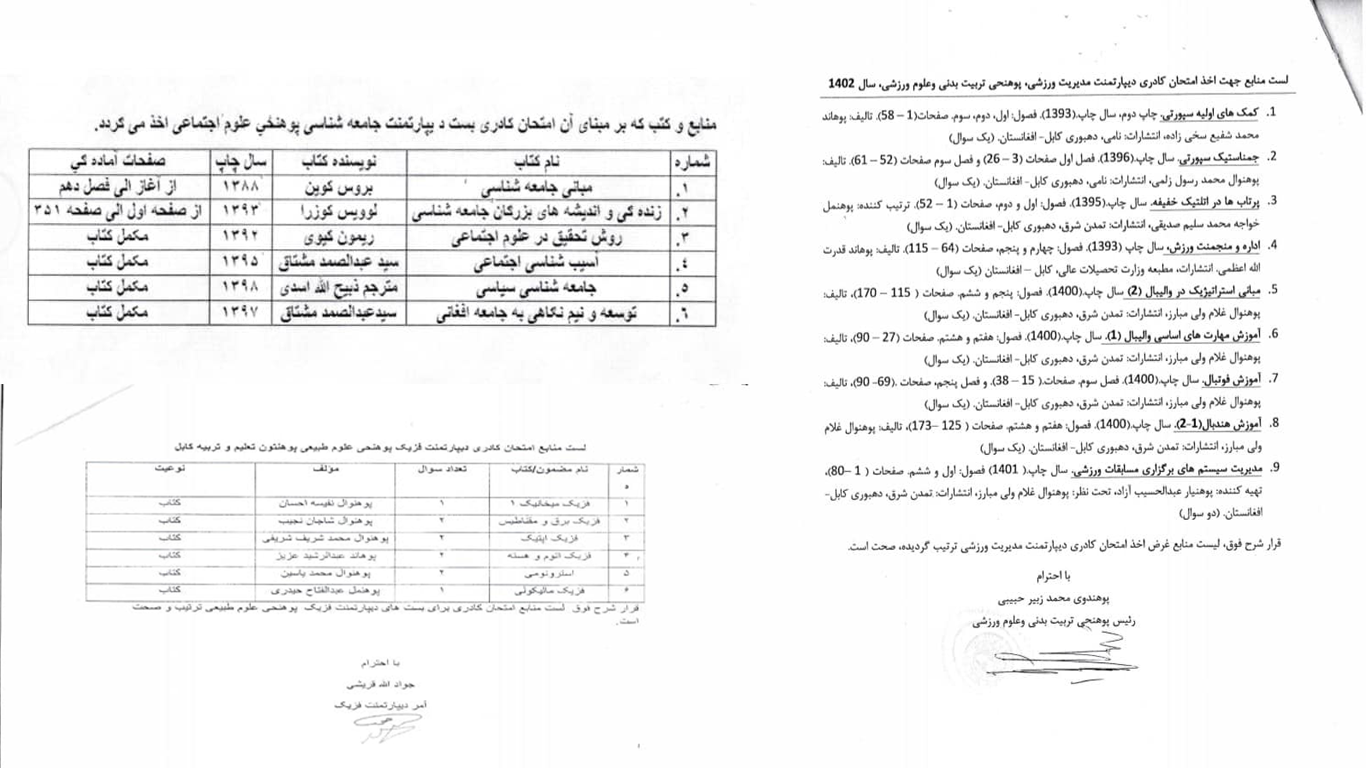 منابع و کتب که بر مبنای آن امتحان کادری بست د یپارتمنت جامعه شناسی پوهنځي علوم اجتماعی اخذ می گردد.
شماره نام کتاب نویسنده کتاب سال چاپ صفحات آماده گي
۱. مبانی جامعه شناسی بروس کوین ۱۳۸۸ از آغاز الی فصل دهم
۲. زنده گی و اندیشه های بزرگان جامعه شناسی لوویس کوزرا ۱۳۹۳ از صفحه اول الی صفحه ۳۵۱
۳. روش تحقیق در علوم اجتماعی ریمون کیوی ۱۳۹۲ مکمل کتاب
۴. آسیب شناسی اجتماعی سید عبدالصمد مشتاق ۱۳۹۵ مکمل کتاب
۵. جامعه شناسی سیاسی مترجم ذبیح الله اسدی ۱۳۹۸ مکمل کتاب
۶. توسعه و نیم نگاهی به جامعه افغانی سیدعبدالصمد مشتاق ۱۳۹۷ مکمل کتاب
لست منابع امتحان کادری دیپارتمنت فزیک پوهنحی علوم طبیعی پوهنتون تعلیم و تربیه کابل
شماره نام مضمون/کتاب تعداد سوال مؤلف نوعیت
۱ فزیک میخانیک ۱ ۱ پوهنوال نفیسه احسان کتاب
۲ فزیک برق و مقناطیس ۲ پوهنوال شاجان نجیب کتاب
۳ فزیک اپتیک ۲ پوهنوال محمد شریف شریفی کتاب
۴ فزیک اتوم و هسته ۲ پوهاند عبدالرشید عزیز کتاب
۵ استرونومی ۲ پوهنوال محمد یاسین کتاب
۶ فزیک مالیکولی ۱ پوهنمل عبدالفتاح حیدری کتاب
قرار شرح فوق لست منابع امتحان کادری برای بست های دیپارتمنت فزیک پوهنحی علوم طبیعی ترتیب و صحت
است.
با احترام
جواد الله قریشی
آمر دیپارتمنت فزیک
لست منابع جهت اخذ امتحان کادری دیپارتمنت مدیریت ورزشی، پوهنحی تربیت بدنی وعلوم ورزشی، سال 1402
1. کمک های اولیه سپورتی. چاپ دوم، سال چاپ.(1393). فصول: اول، دوم، سوم. صفحات(1 – 58). تالیف: پوهاند
محمد شفیع سخی زاده، انتشارات: نامی، دهبوری کابل-افغانستان. (یک سوال)
2. جمناستیک سپورتی. سال چاپ.(1396). فصل اول صفحات (3 – 26) و فصل سوم صفحات (52 – 61). تالیف:
پوهنوال محمد رسول زلمی، انتشارات: نامی، دهبوری کابل- افغانستان. (یک سوال)
3. پرتاب ها در اتلتیک خفیفه. سال چاپ.(1395). فصول: اول و دوم، صفحات (1 – 52). ترتیب کننده: پوهنمل
خواجه محمد سلیم صدیقی، انتشارات: تمدن شرق، دهبوری کابل-افغانستان. (یک سوال)
4. اداره و منجمنت ورزش، سال چاپ (1393). فصول: چهارم و پنجم، صفحات (64 – 115). تالیف: پوهاند قدرت
الله اعظمی. انتشارات، مطبعه وزارت تحصیلات عالی، کابل – افغانستان (یک سوال)
5. مبانی استراتیژیک در والیبال (2) سال چاپ.(1400). فصول: پنجم و ششم. صفحات ( 115 – 170)، تالیف:
پوهنوال غلام ولی مبارز، انتشارات: تمدن شرق، دهبوری کابل-افغانستان. (یک سوال)
6. آموزش مهارت های اساسی والیبال (1). سال چاپ.(1400). فصول: هفتم و هشتم. صفحات (27 – 90)، تالیف:
پوهنوال غلام ولی مبارز، انتشارات: تمدن شرق، دهبوری کابل- افغانستان. (یک سوال)
7. آموزش فوتبال. سال چاپ.(1400). فصل سوم. صفحات.( 15 – 38). و فصل پنجم، صفحات .(69- 90)، تالیف:
پوهنوال غلام ولی مبارز، انتشارات: تمدن شرق، دهبوری کابل- افغانستان. (یک سوال)
8. آموزش هندبال(1-2). سال چاپ.(1400). فصول: هفتم و هشتم. صفحات ( 125 –173)، تالیف: پوهنوال غلام
ولی مبارز، انتشارات: تمدن شرق، دهبوری کابل- افغانستان. (یک سوال)
9. مدیریت سیستم های برگزاری مسابقات ورزشی. سال چاپ.( 1401) فصول: اول و ششم. صفحات ( 1 –80)،
تهیه کننده: پوهنیار عبدالحسیب آزاد، تحت نظر: پوهنوال غلام ولی مبارز، انتشارات: تمدن شرق، دهبوری کابل-
افغانستان. (دو سوال)
قرار شرح فوق، لیست منابع غرض اخذ امتحان کادری دیپارتمنت مدیریت ورزشی ترتیب گردیده، صحت است.
با احترام
پوهندوی محمد زبیر حبیبی
رئیس پوهنحی تربیت بدنی وعلوم ورزشی